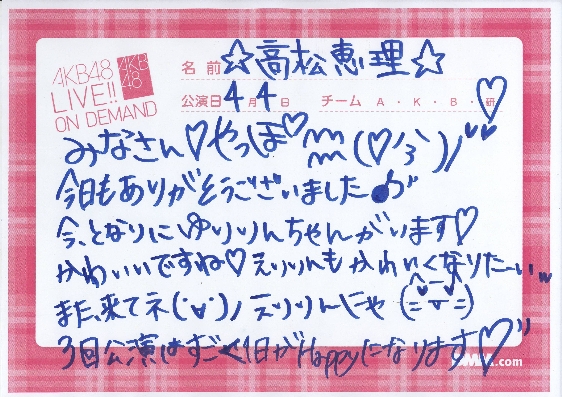 AKB48
LIVE!!
ON DEMAND
AKB
48
名前 ☆高松恵理☆
公演日 4月4日 チーム A・K・B・研
みなさん♡やっほ♡
今日もありがとうございました♪
今、となりにゆりりんちゃんがいます♡
かわいいですね♡えりりんもかわいくなりたーい
また、来てネ(･∀･)ノ えりりんにゃ
3回公演はすごく1日がHappyになります♡
.com